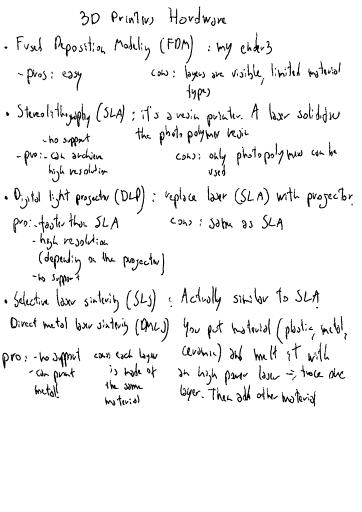 3D Printers Hardware
• Fused Deposition Modeling (FDM) : my ender3
- pros : easy cons : layers are visible, limited material
types
• Stereolithography (SLA) : it's a resin printer. A laser solidifies
the photopolymer resin
- no support
- pro: - can archieve
high resolution
cons : only photopolymer can be
used
• Digital light projector (DLP) : replace laser (SLA) with projector
pro: - faster than SLA cons : same as SLA
- high resolution
(depending on the projector)
- no support
• Selective laser sintering (SLS) : Actually similar to SLA
Direct metal laser sintering (DMLS) You put material (plastic, metal,
ceramic) and melt it with
an high power laser → trace one
layer. Then add other material
pro : - no support
- can print
metal!
cons: each layer
is made of
the same
material